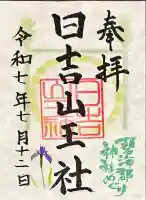 奉拝
日吉山王社
令和七年七月十二日
神社めぐり